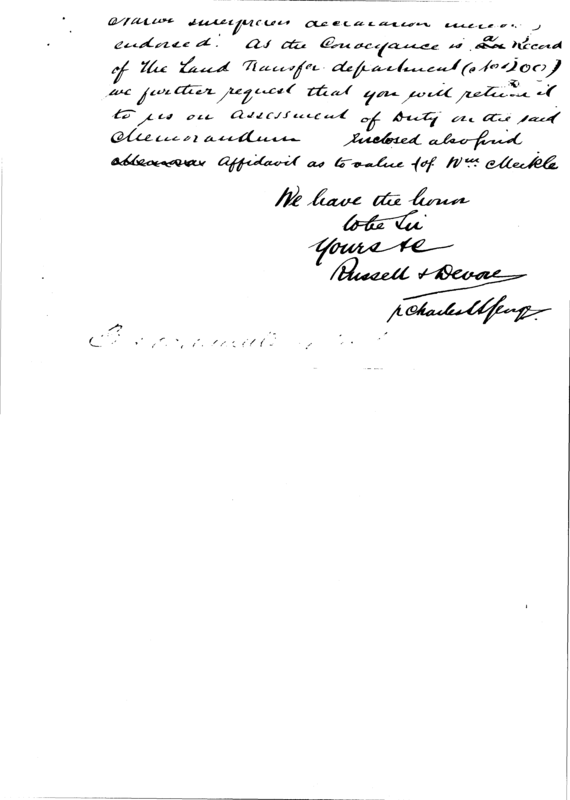 declaration
endorsed. As the Conveyance is a Record
of The Land Transfer department
we further request that you will return it
to us on assessment of Duty on the said
Memorandum Enclosed also find
Affidavit as to value (of Wm Meikle
We have the honor
to be Sir
Yours &c
Russell & Devore
p Charles